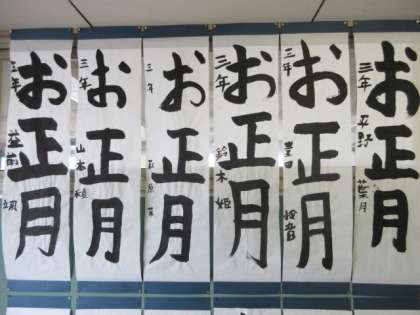 お正月
三年 平野 葉月
お正月
三年 豊田
お正月
三年 鈴木 姫
お正月
三年
お正月
三年 山本
お正月
三年